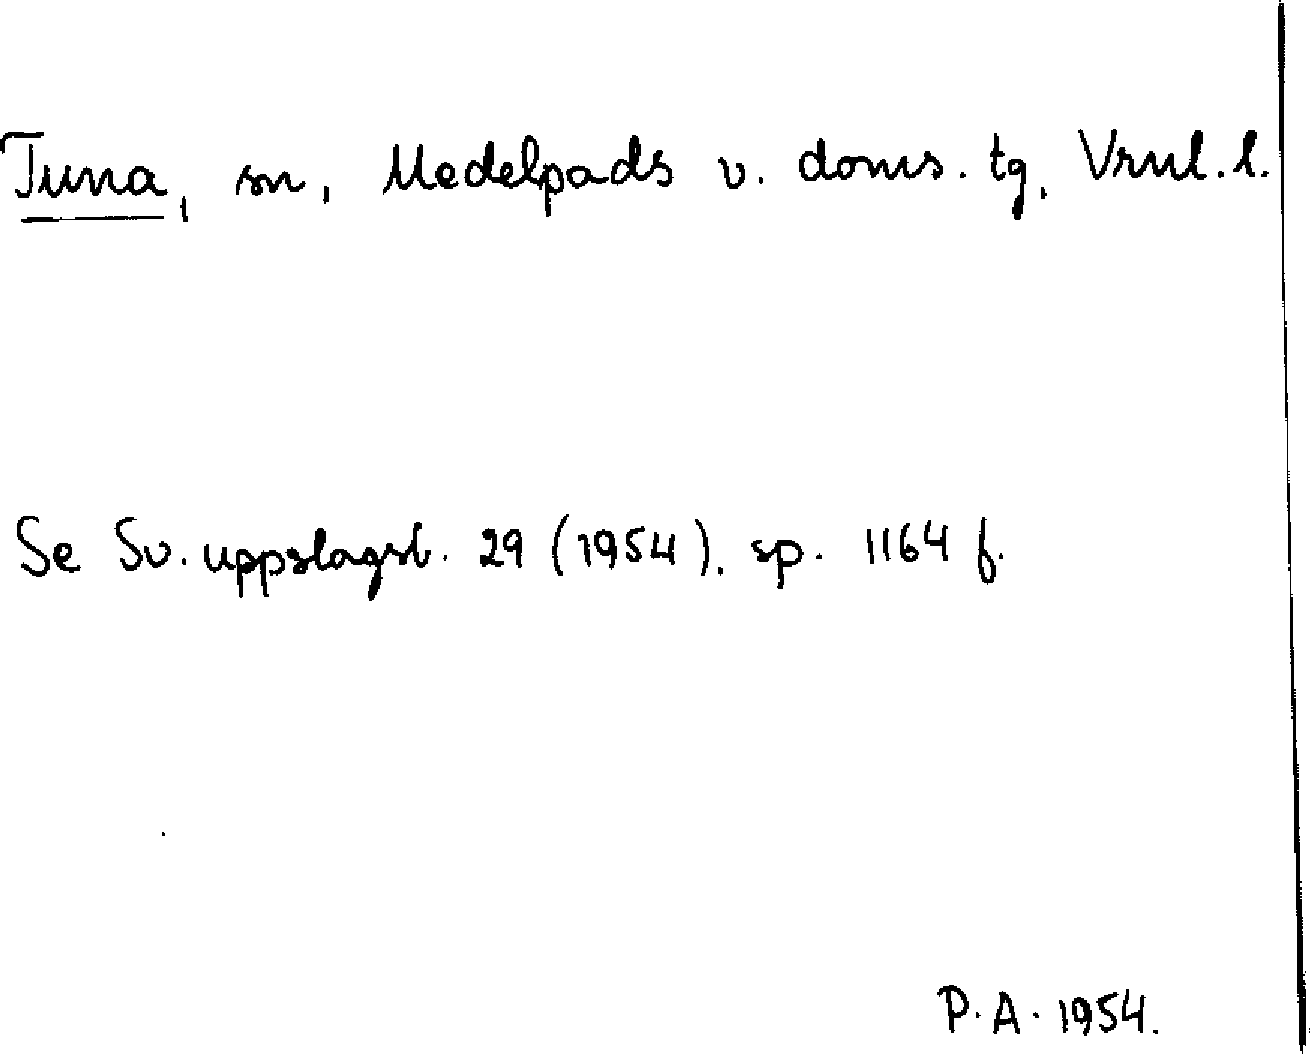 Tuna, sn, Medelpads v. doms. tg, Vrnl. l.
Se Sv. uppslagsb. 29 (1954), sp. 1164 f.
P. A. 1954.